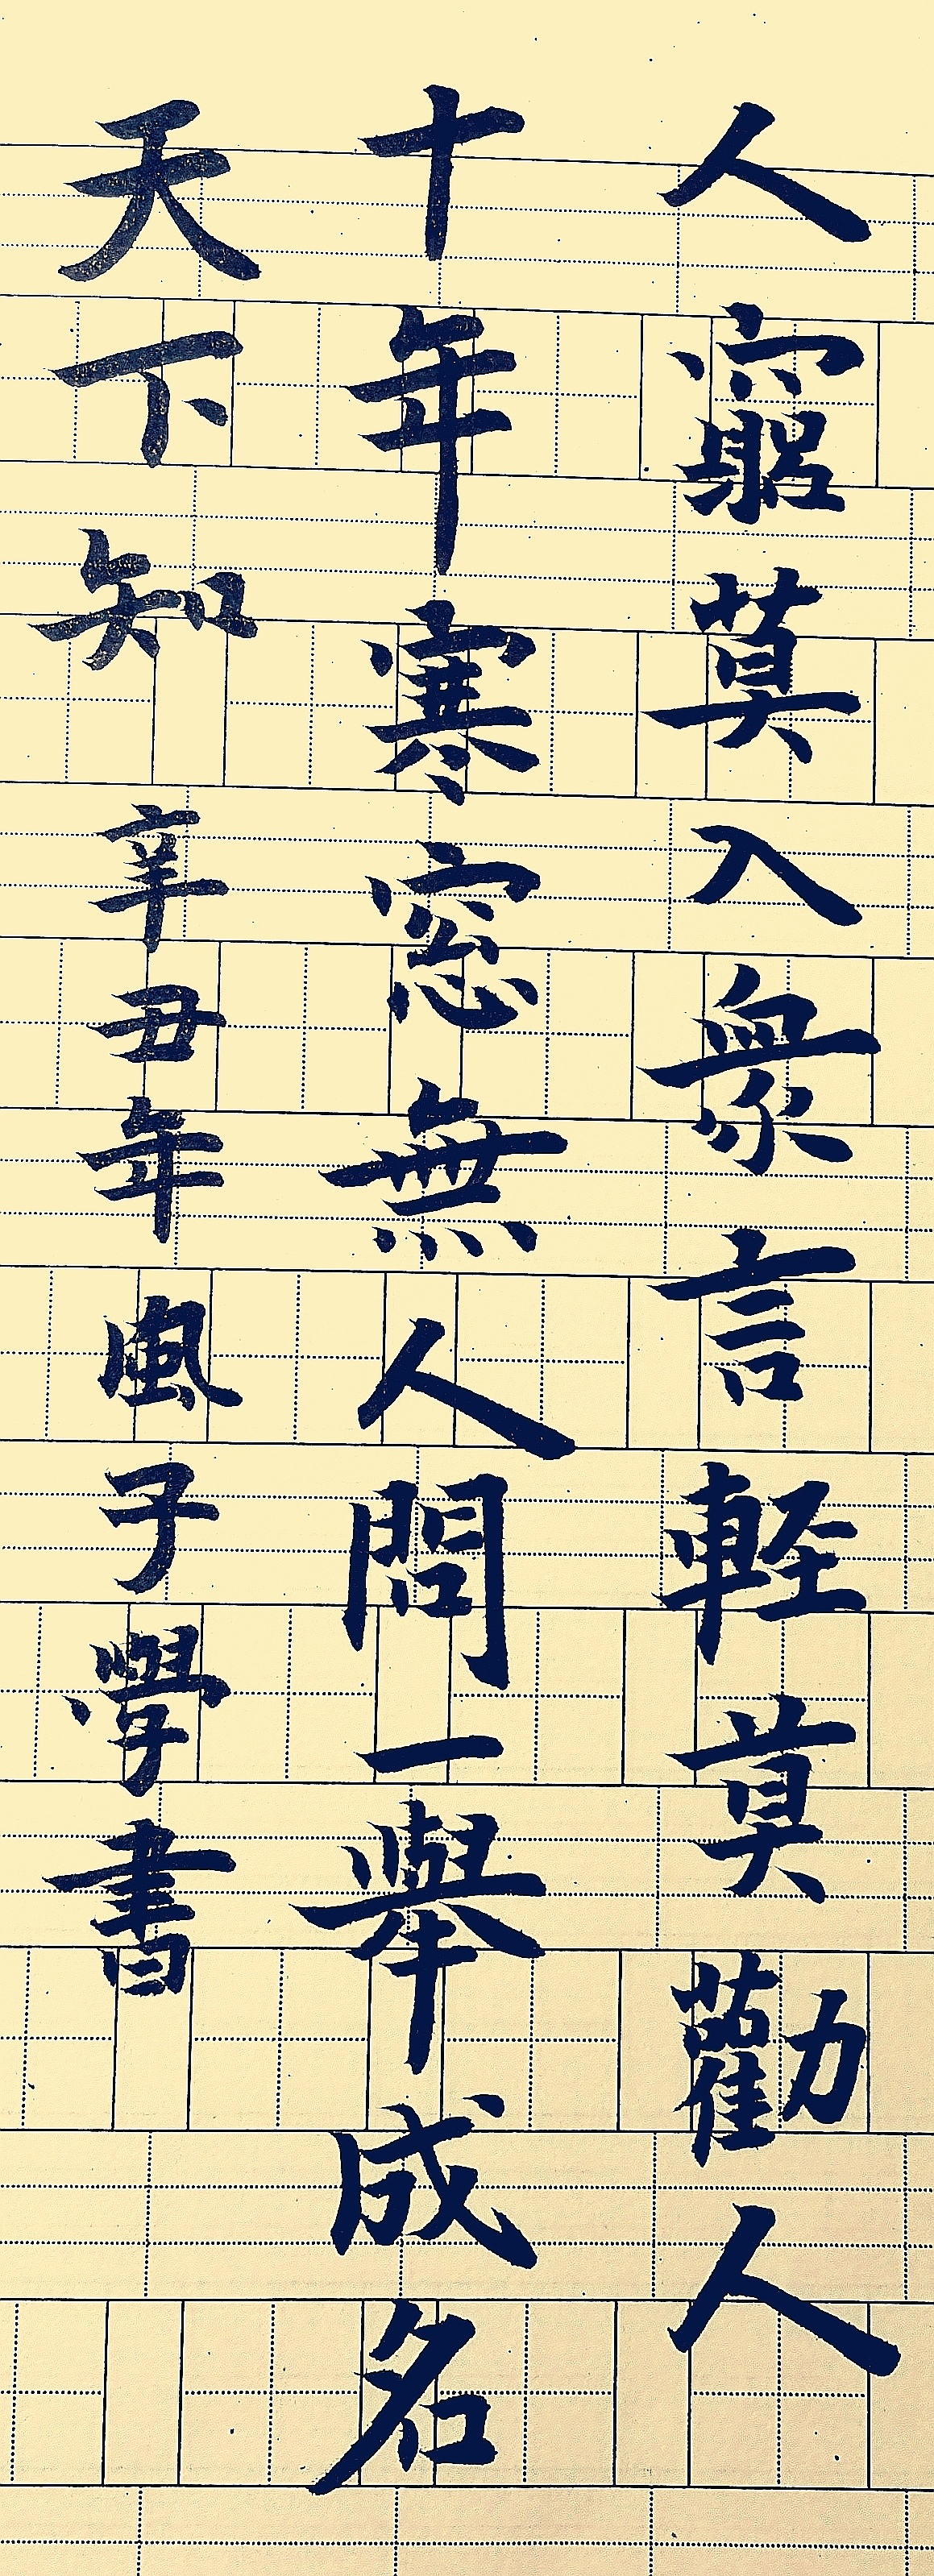 人窮莫入衆言輕莫勸人
十年寒窓無人問一舉成名
天下知 辛丑年風子學書